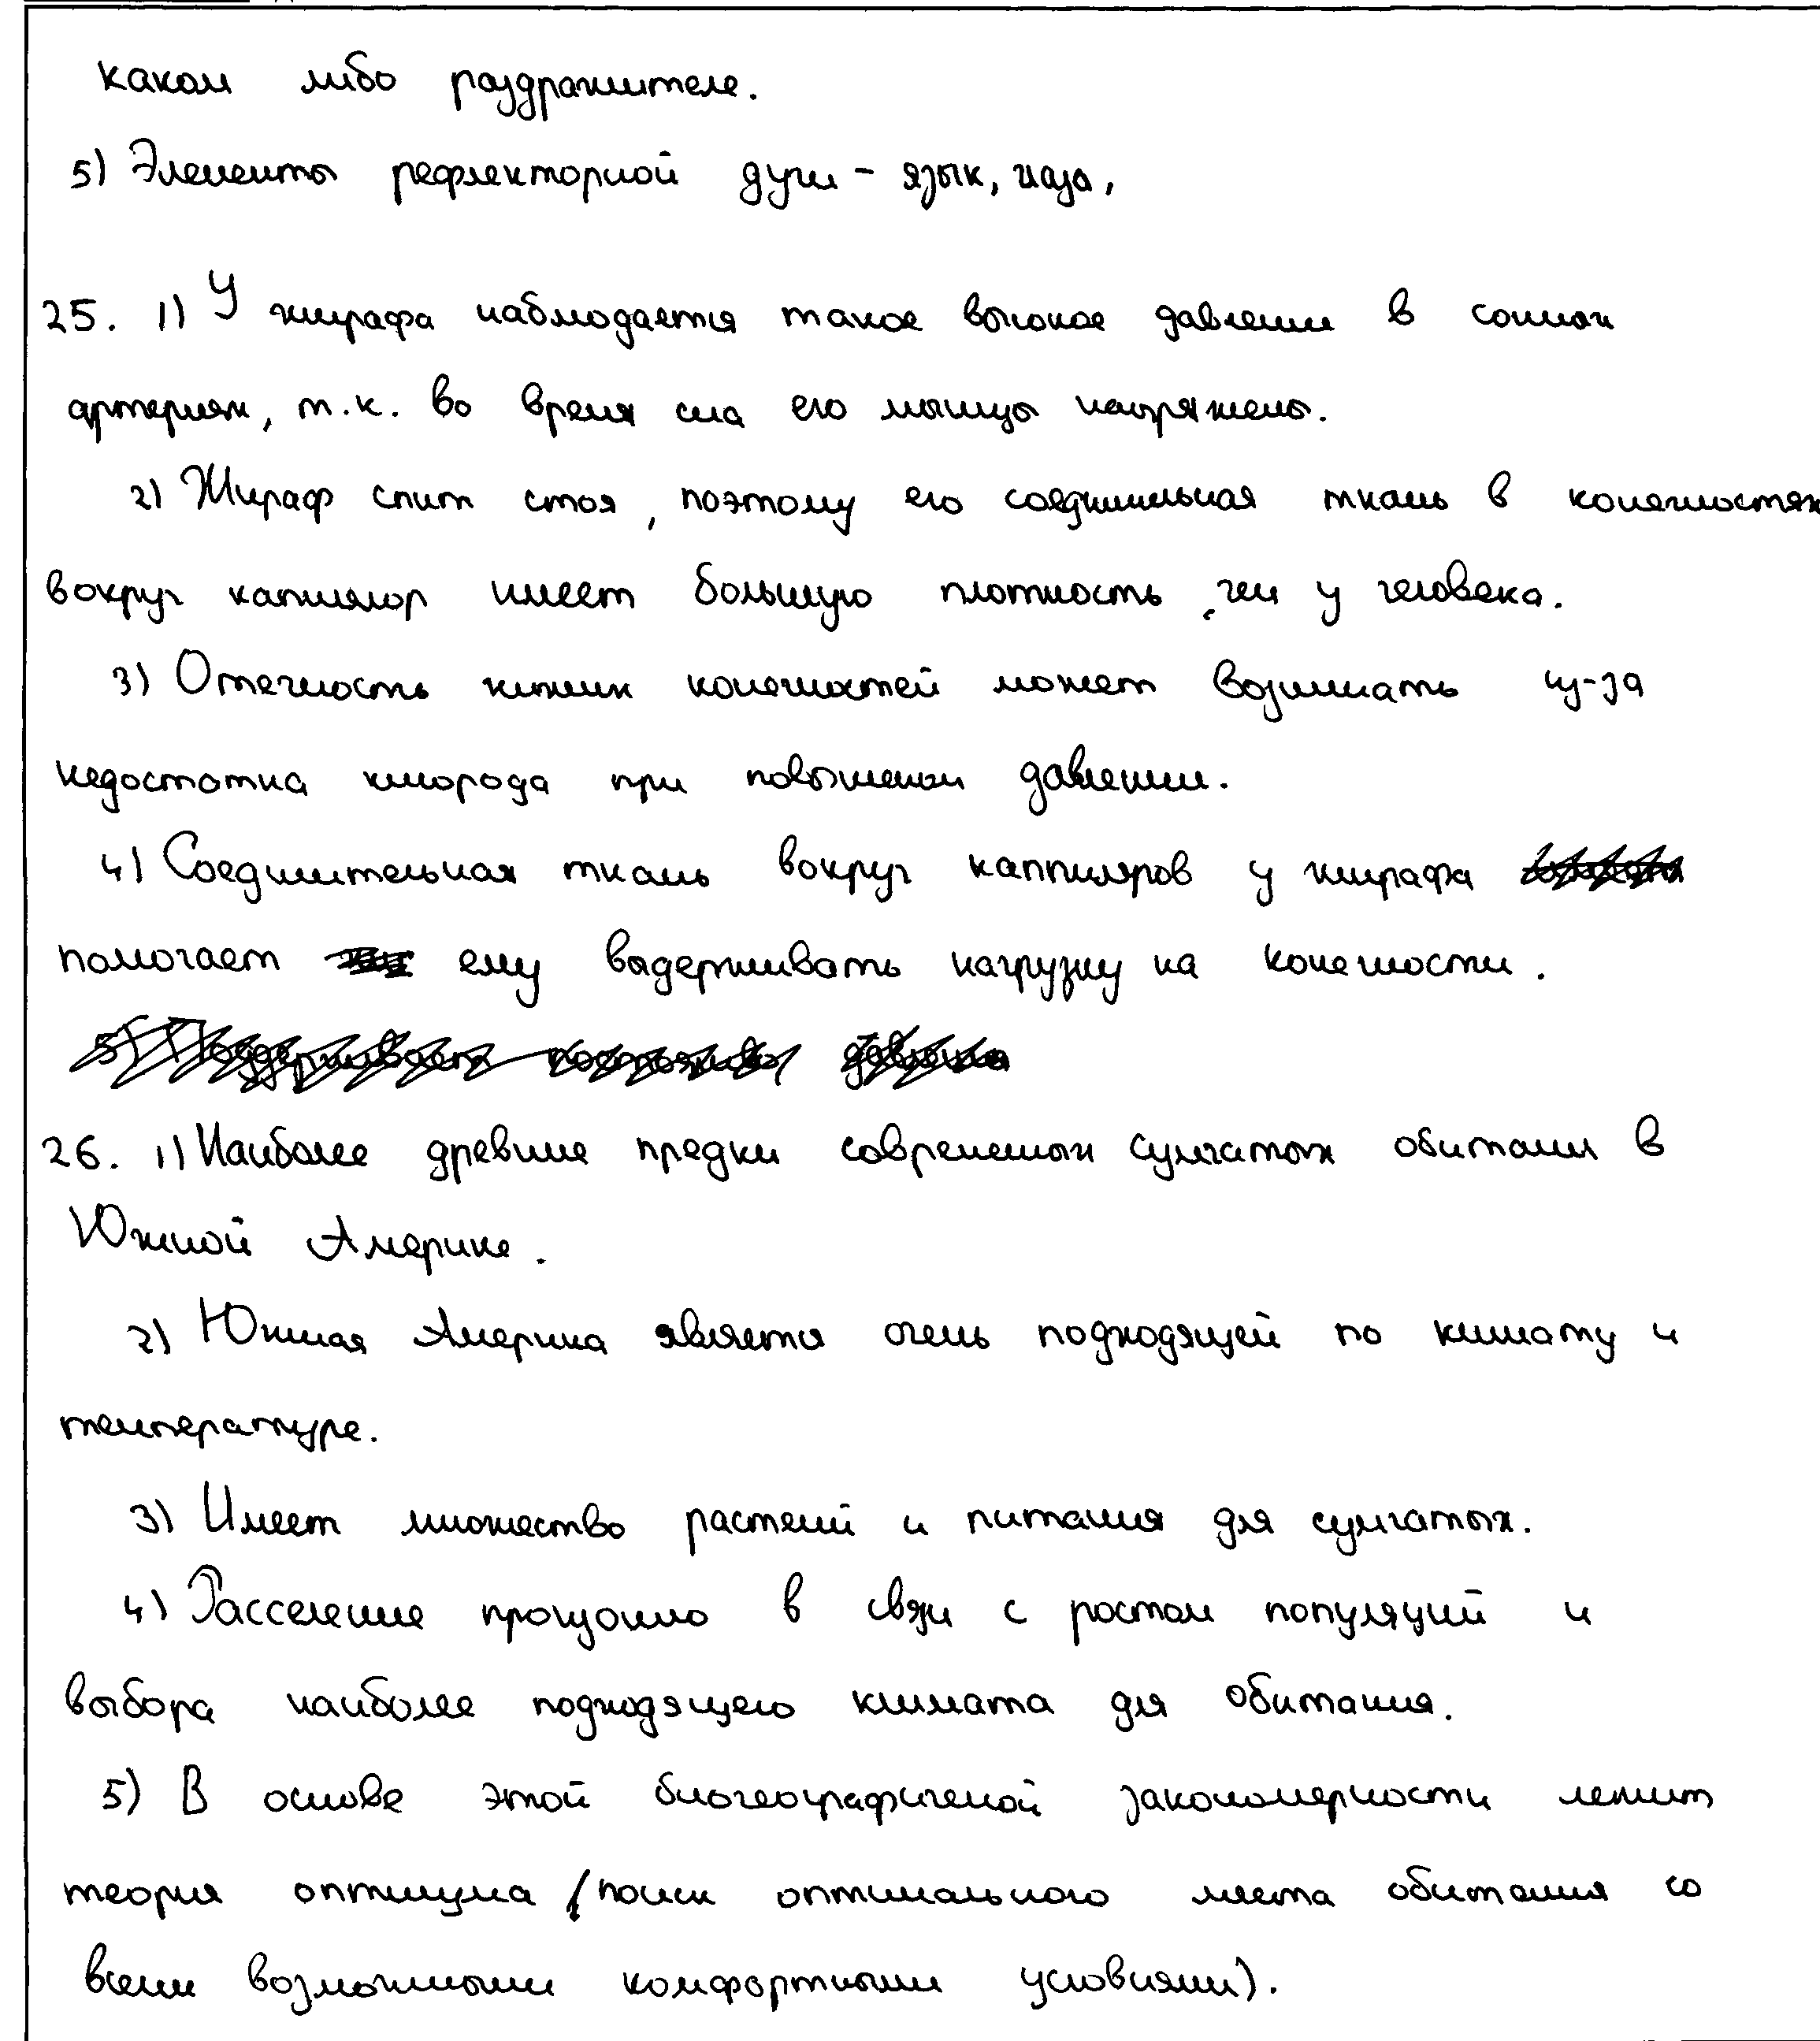 каком либо раздражителе.
5) Элементы рефлекторной дуги - язык, глаза,
25. 1) У жирафа наблюдается такое высокое давление в сонных
артериях, т.к. во время сна его мышцы напряжены.
2) Жираф спит стоя, поэтому его соединильная ткань в конечностях
вокруг капиляюр имеет большую плотность, чем у человека.
3) Отечность нижних конечностей может возникать из-за
недостатка кислорода при повышеном давлении.
4) Соединительная ткань вокруг каппиляров у жирафа
помогает ему выдерживать нагрузку на конечности.
26. 1) Наиболее древние предки современных сумчатых обитали в
Южной Америке.
2) Южная Америка является очень подходящей по климату и
температуре.
3) Имеет множество растений и питания для сумчатых.
4) Расселение произошло в связи с ростом популяций и
выбора наиболее подходящего климата для обитания.
5) В основе этой биогеографической закономерности лежит
теория оптимума (поиск оптимального места обитания со
всеми возможными комфортными условиями).